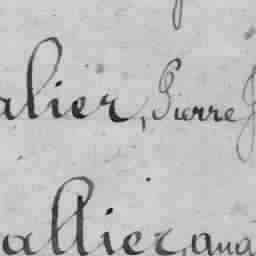 alier, Pierre J
allier, ana